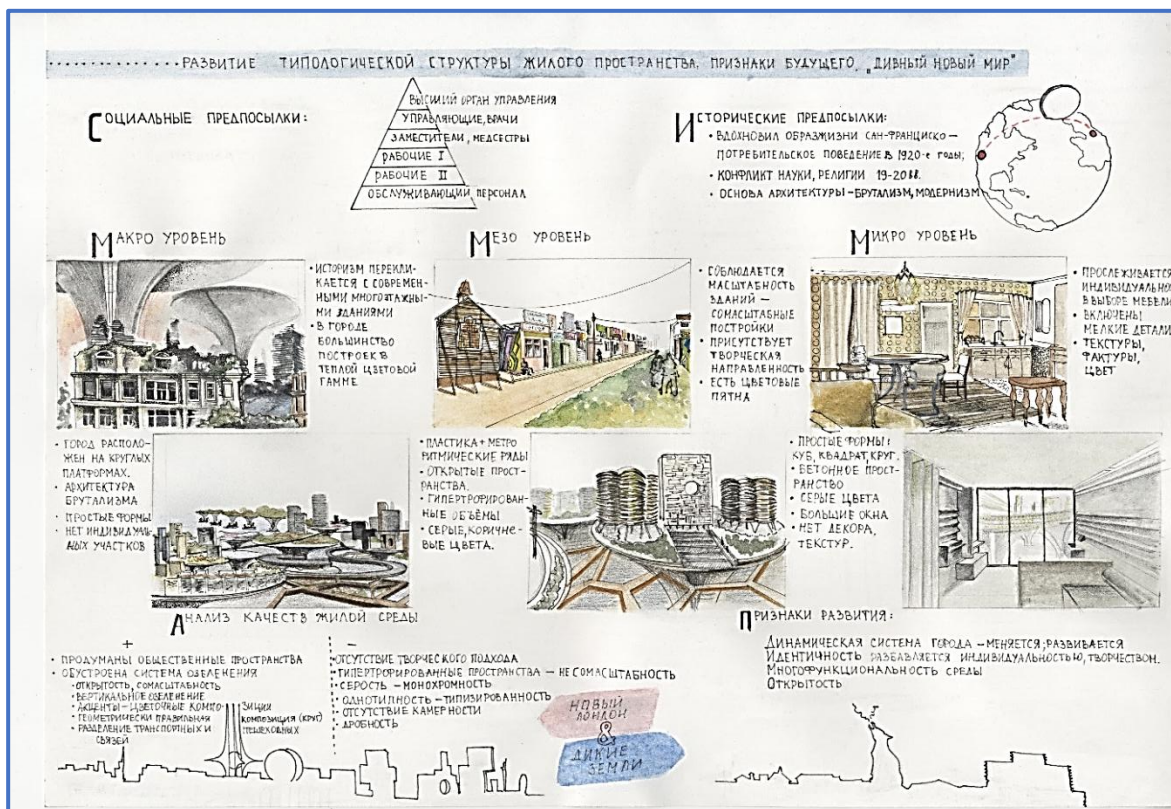 РАЗВИТИЕ ТИПОЛОГИЧЕСКОЙ СТРУКТУРЫ ЖИЛОГО ПРОСТРАНСТВА. ПРИЗНАКИ БУДУЩЕГО „ДИВНЫЙ НОВЫЙ МИР"
СОЦИАЛЬНЫЕ ПРЕДПОСЫЛКИ:
ВЫСШИЙ ОРГАН УПРАВЛЕНИЯ
УПРАВЛЯЮЩИЕ, ВРАЧИ
ЗАМЕСТИТЕЛИ, МЕДСЕСТРЫ
РАБОЧИЕ I
РАБОЧИЕ II
ОБСЛУЖИВАЮЩИЙ ПЕРСОНАЛ
ИСТОРИЧЕСКИЕ ПРЕДПОСЫЛКИ:
• ВДОХНОВИЛ ОБРАЗЖИЗНИ САН-ФРАНЦИСКО –
ПОТРЕБИТЕЛЬСКОЕ ПОВЕДЕНИЕ В 1920-е ГОДЫ;
• КОНФЛИКТ НАУКИ, РЕЛИГИИ 19-20 вв.
• ОСНОВА АРХИТЕКТУРЫ – БРУТАЛИЗМ, МОДЕРНИЗМ
МАКРО УРОВЕНЬ
• ИСТОРИЗМ ПЕРЕКЛИ-
КАЕТСЯ С СОВРЕМЕН-
НЫМИ МНОГОЭТАЖНЫ-
МИ ЗДАНИЯМИ
• В ГОРОДЕ
БОЛЬШИНСТВО
ПОСТРОЕК В
ТЕПЛОЙ ЦВЕТОВОЙ
ГАММЕ
• ГОРОД РАСПОЛО-
ЖЕН НА КРУГЛЫХ
ПЛАТФОРМАХ.
• АРХИТЕКТУРА
БРУТАЛИЗМА
• ПРОСТЫЕ ФОРМЫ
НЕТ ИНДИВИДУАЛЬ-
НЫХ УЧАСТКОВ
МЕЗО УРОВЕНЬ
• СОБЛЮДАЕТСЯ
МАСШТАБНОСТЬ
ЗДАНИЙ –
СОМАСШТАБНЫЕ
ПОСТРОЙКИ
• ПРИСУТСТВУЕТ
ТВОРЧЕСКАЯ
НАПРАВЛЕННОСТЬ
• ЕСТЬ ЦВЕТОВЫЕ
ПЯТНА
• ПЛАСТИКА + МЕТРО
РИТМИЧЕСКИЕ РЯДЫ
• ОТКРЫТЫЕ ПРОСТ-
РАНСТВА.
• ГИПЕРТРОФИРОВАН-
НЫЕ ОБЪЁМЫ
• СЕРЫЕ, КОРИЧНЕ-
ВЫЕ ЦВЕТА.
МИКРО УРОВЕНЬ
• ПРОСЛЕЖИВАЕТСЯ
ИНДИВИДУАЛЬНО
В ВЫБОРЕ МЕБЕЛИ
• ВКЛЮЧЕНЫ
МЕЛКИЕ ДЕТАЛИ
• ТЕКСТУРЫ,
ФАКТУРЫ,
ЦВЕТ
• ПРОСТЫЕ ФОРМЫ:
КУБ, КВАДРАТ, КРУГ.
• БЕТОННОЕ ПРОСТ-
РАНСТВО
• СЕРЫЕ ЦВЕТА
• БОЛЬШИЕ ОКНА
• НЕТ ДЕКОРА,
ТЕКСТУР.
АНАЛИЗ КАЧЕСТВ ЖИЛОЙ СРЕДЫ
+
• ПРОДУМАНЫ ОБЩЕСТВЕННЫЕ ПРОСТРАНСТВА
• ОБУСТРОЕНА СИСТЕМА ОЗЕЛЕНЕНИЯ
• ОТКРЫТОСТЬ, СОМАСШТАБНОСТЬ
• ВЕРТИКАЛЬНОЕ ОЗЕЛЕНЕНИЕ
• АКЦЕНТЫ – ЦВЕТОЧНЫЕ КОМПО- ЗИЦИИ
• ГЕОМЕТРИЧЕСКИ ПРАВИЛЬНАЯ КОМПОЗИЦИЯ (КРУГ)
• РАЗДЕЛЕНИЕ ТРАНСПОРТНЫХ И ПЕШЕХОДНЫХ
СВЯЗЕЙ
–
• ОТСУТСТВИЕ ТВОРЧЕСКОГО ПОДХОДА
• ГИПЕРТРОФИРОВАННЫЕ ПРОСТРАНСТВА – НЕ СОМАСШТАБНОСТЬ
• СЕРОСТЬ – МОНОХРОМНОСТЬ
• ОДНОТИПНОСТЬ – ТИПИЗИРОВАННОСТЬ
• ОТСУТСТВИЕ КАМЕРНОСТИ
• ДРОБНОСТЬ
НОВЫЙ
ЛОНДОН
&
ДИКИЕ
ЗЕМЛИ
ПРИЗНАКИ РАЗВИТИЯ:
ДИНАМИЧЕСКАЯ СИСТЕМА ГОРОДА – МЕНЯЕТСЯ; РАЗВИВАЕТСЯ
ИДЕНТИЧНОСТЬ РАЗБАВЛЯЕТСЯ ИНДИВИДУАЛЬНОСТЬЮ, ТВОРЧЕСТВОМ.
МНОГОФУНКЦИОНАЛЬНОСТЬ СРЕДЫ
ОТКРЫТОСТЬ